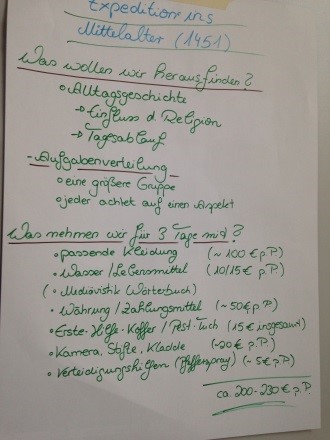 Expedition ins
Mittelalter (1451)
Was wollen wir herausfinden?
o Alltagsgeschichte
→ Einfluss d. Religion
→ Tagesablauf
- Aufgabenverteilung
o eine größere Gruppe
o jeder achtet auf einen Aspekt
Was nehmen wir für 3 Tage mit?
• passende Kleidung (~ 100 € p.P)
• Wasser / Lebensmittel (10/15 € p.P)
(• Mediävistik Wörterbuch)
• Währung / Zahlungsmittel (~ 50 € p.P)
• Erste-Hilfe-Koffer / Pest-Tuch (15 € insgesamt)
• Kamera, Stifte, Kladde (~20 € p.P)
• Verteidigungshilfen (Pfefferspray) (~ 5 € p.P)
ca. 200-230 € p.P.